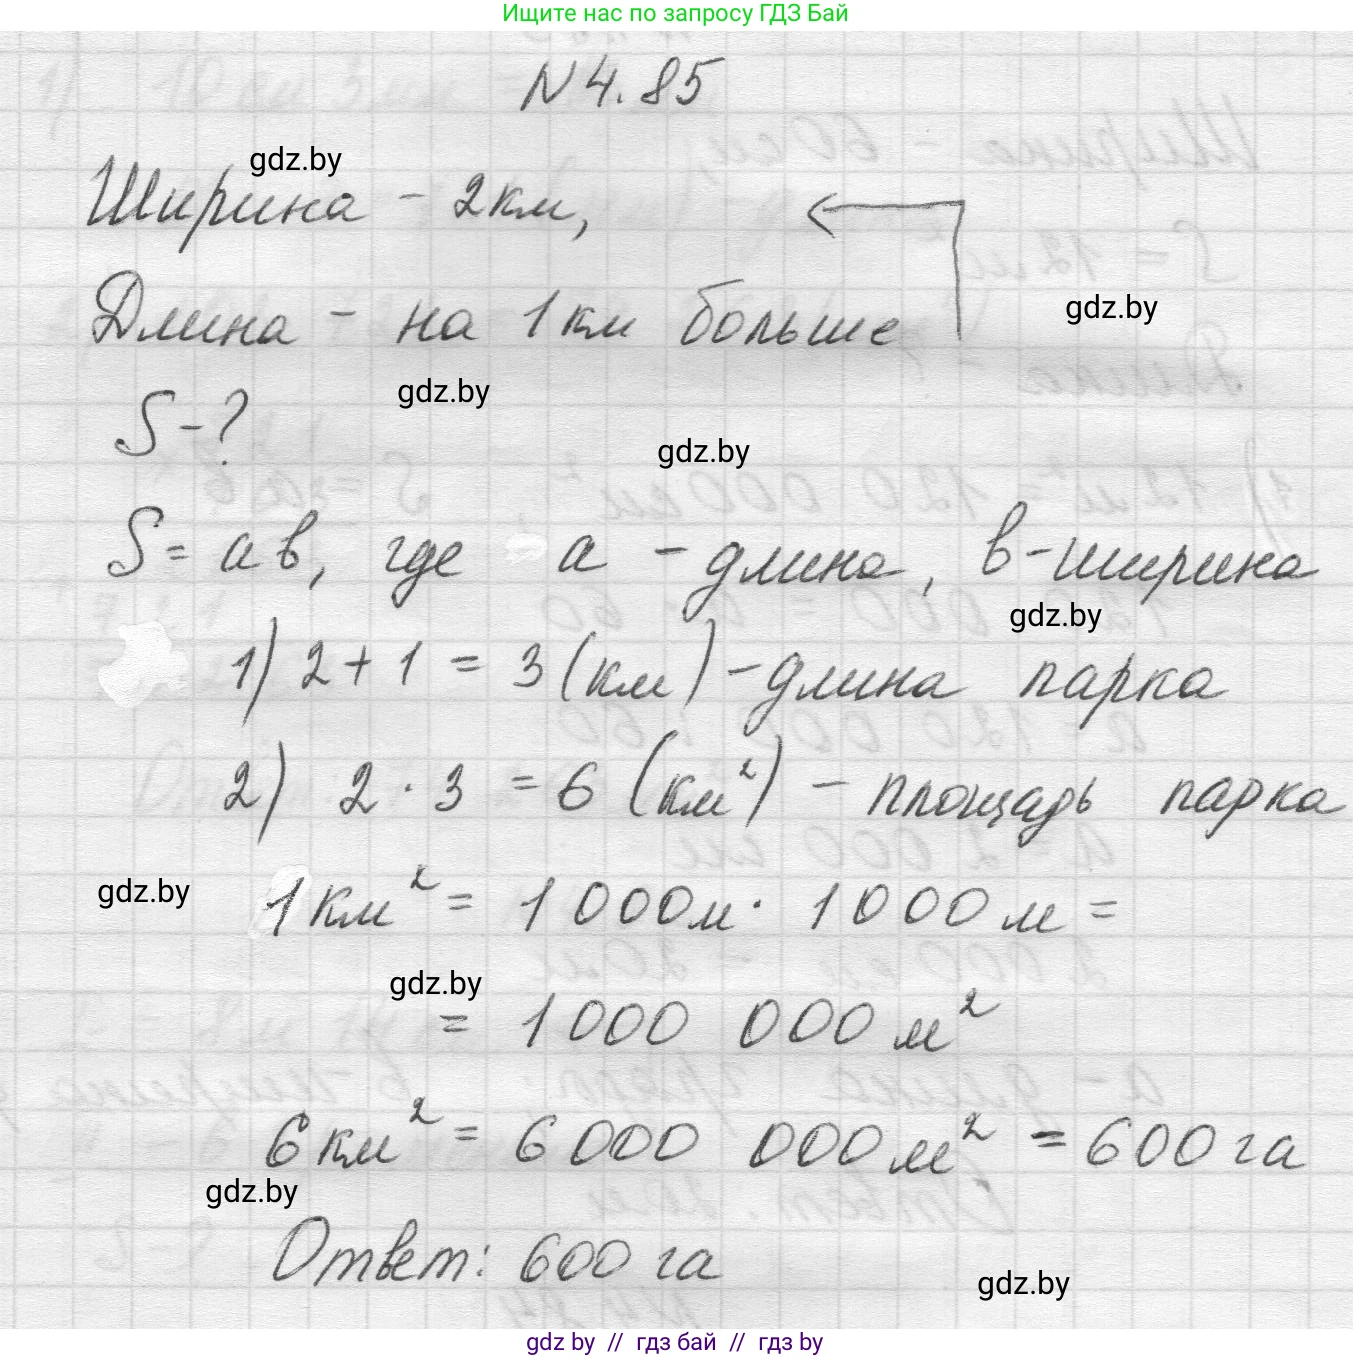 Ищите нас по запросу ГДЗ Бай
N 4.85
gdz.by
Ширина - 2км,
Длина - на 1км больше
gdz.by
gdz.by
S-?
gdz.by
S = ав, где а - длина, в-ширина
gdz.by
1) 2+1 = 3 (км) - длина парка
2) 2 · 3 = 6 (км²) - площадь парка
gdz.by
1км² = 1 000м · 1 000 м =
gdz.by
= 1 000 000 м²
6км² = 6 000 000 м² = 600 га
gdz.by
Ответ: 600 га
gdz.by
gdz by // гдз бай // гдз by